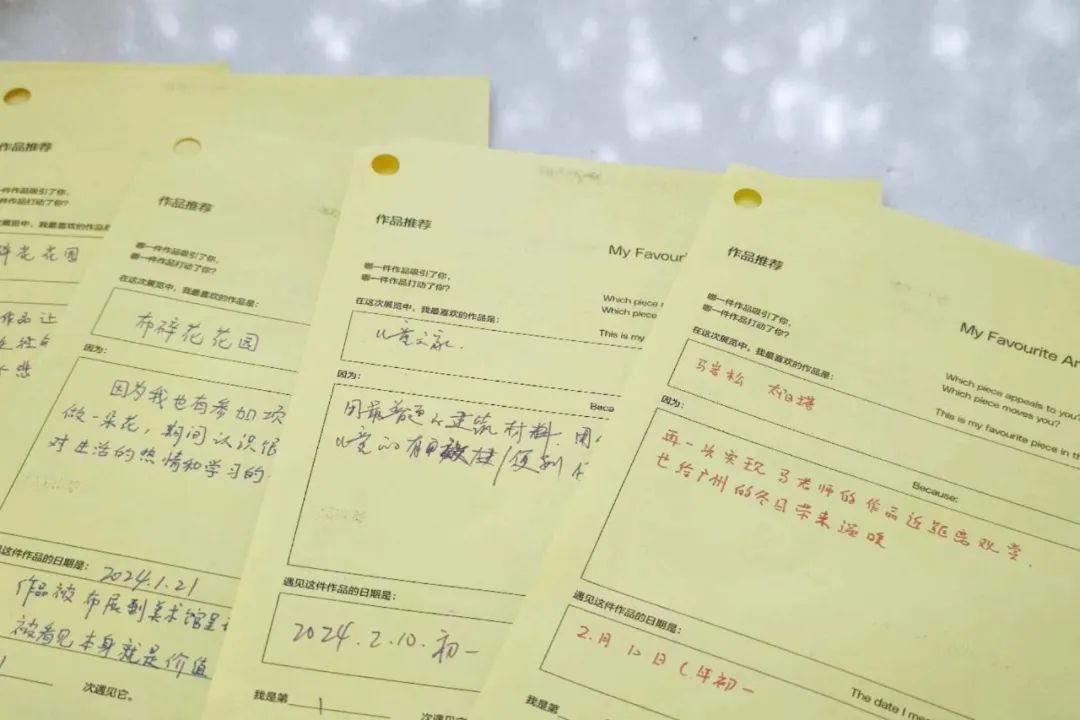 作品推荐
一件作品吸引了你，
一件作品打动了你？
在这次展览中，我最喜欢的作品是
碎花花园
作品让
作品推荐
哪一件作品吸引了你，
哪一件作品打动了你？
在这次展览中，我最喜欢的作品是：
布碎花花园
因为：
因为我也有参加项
做一朵花，期间认识很
对生活的热情和学习的
遇见这件作品的日期是：
2024.1.21
作品被布展到美术馆里
被看见本身就是价值
次遇见它。
作品推荐
My Favour
哪一件作品吸引了你，
哪一件作品打动了你？
Which piece
Which piece
在这次展览中，我最喜欢的作品是：
This is my
儿童之家.
因为：
Beca
用最普通的建筑材料.用
儿童的
遇见这件作品的日期是：
2024.2.10.初一
我是第
1
次遇见它
作品推荐
My Favourite Ar
哪一件作品吸引了你，
哪一件作品打动了你？
Which piece appeals to you?
Which piece moves you?
在这次展览中，我最喜欢的作品是：
This is my favourite piece in th
马岩松
因为：
Because:
再一次实现马老师的作品近距离欢赏.
也给广州的冬日带来温暖
遇见这件作品的日期是：
2.月10日(年初一
The date I me
我是第